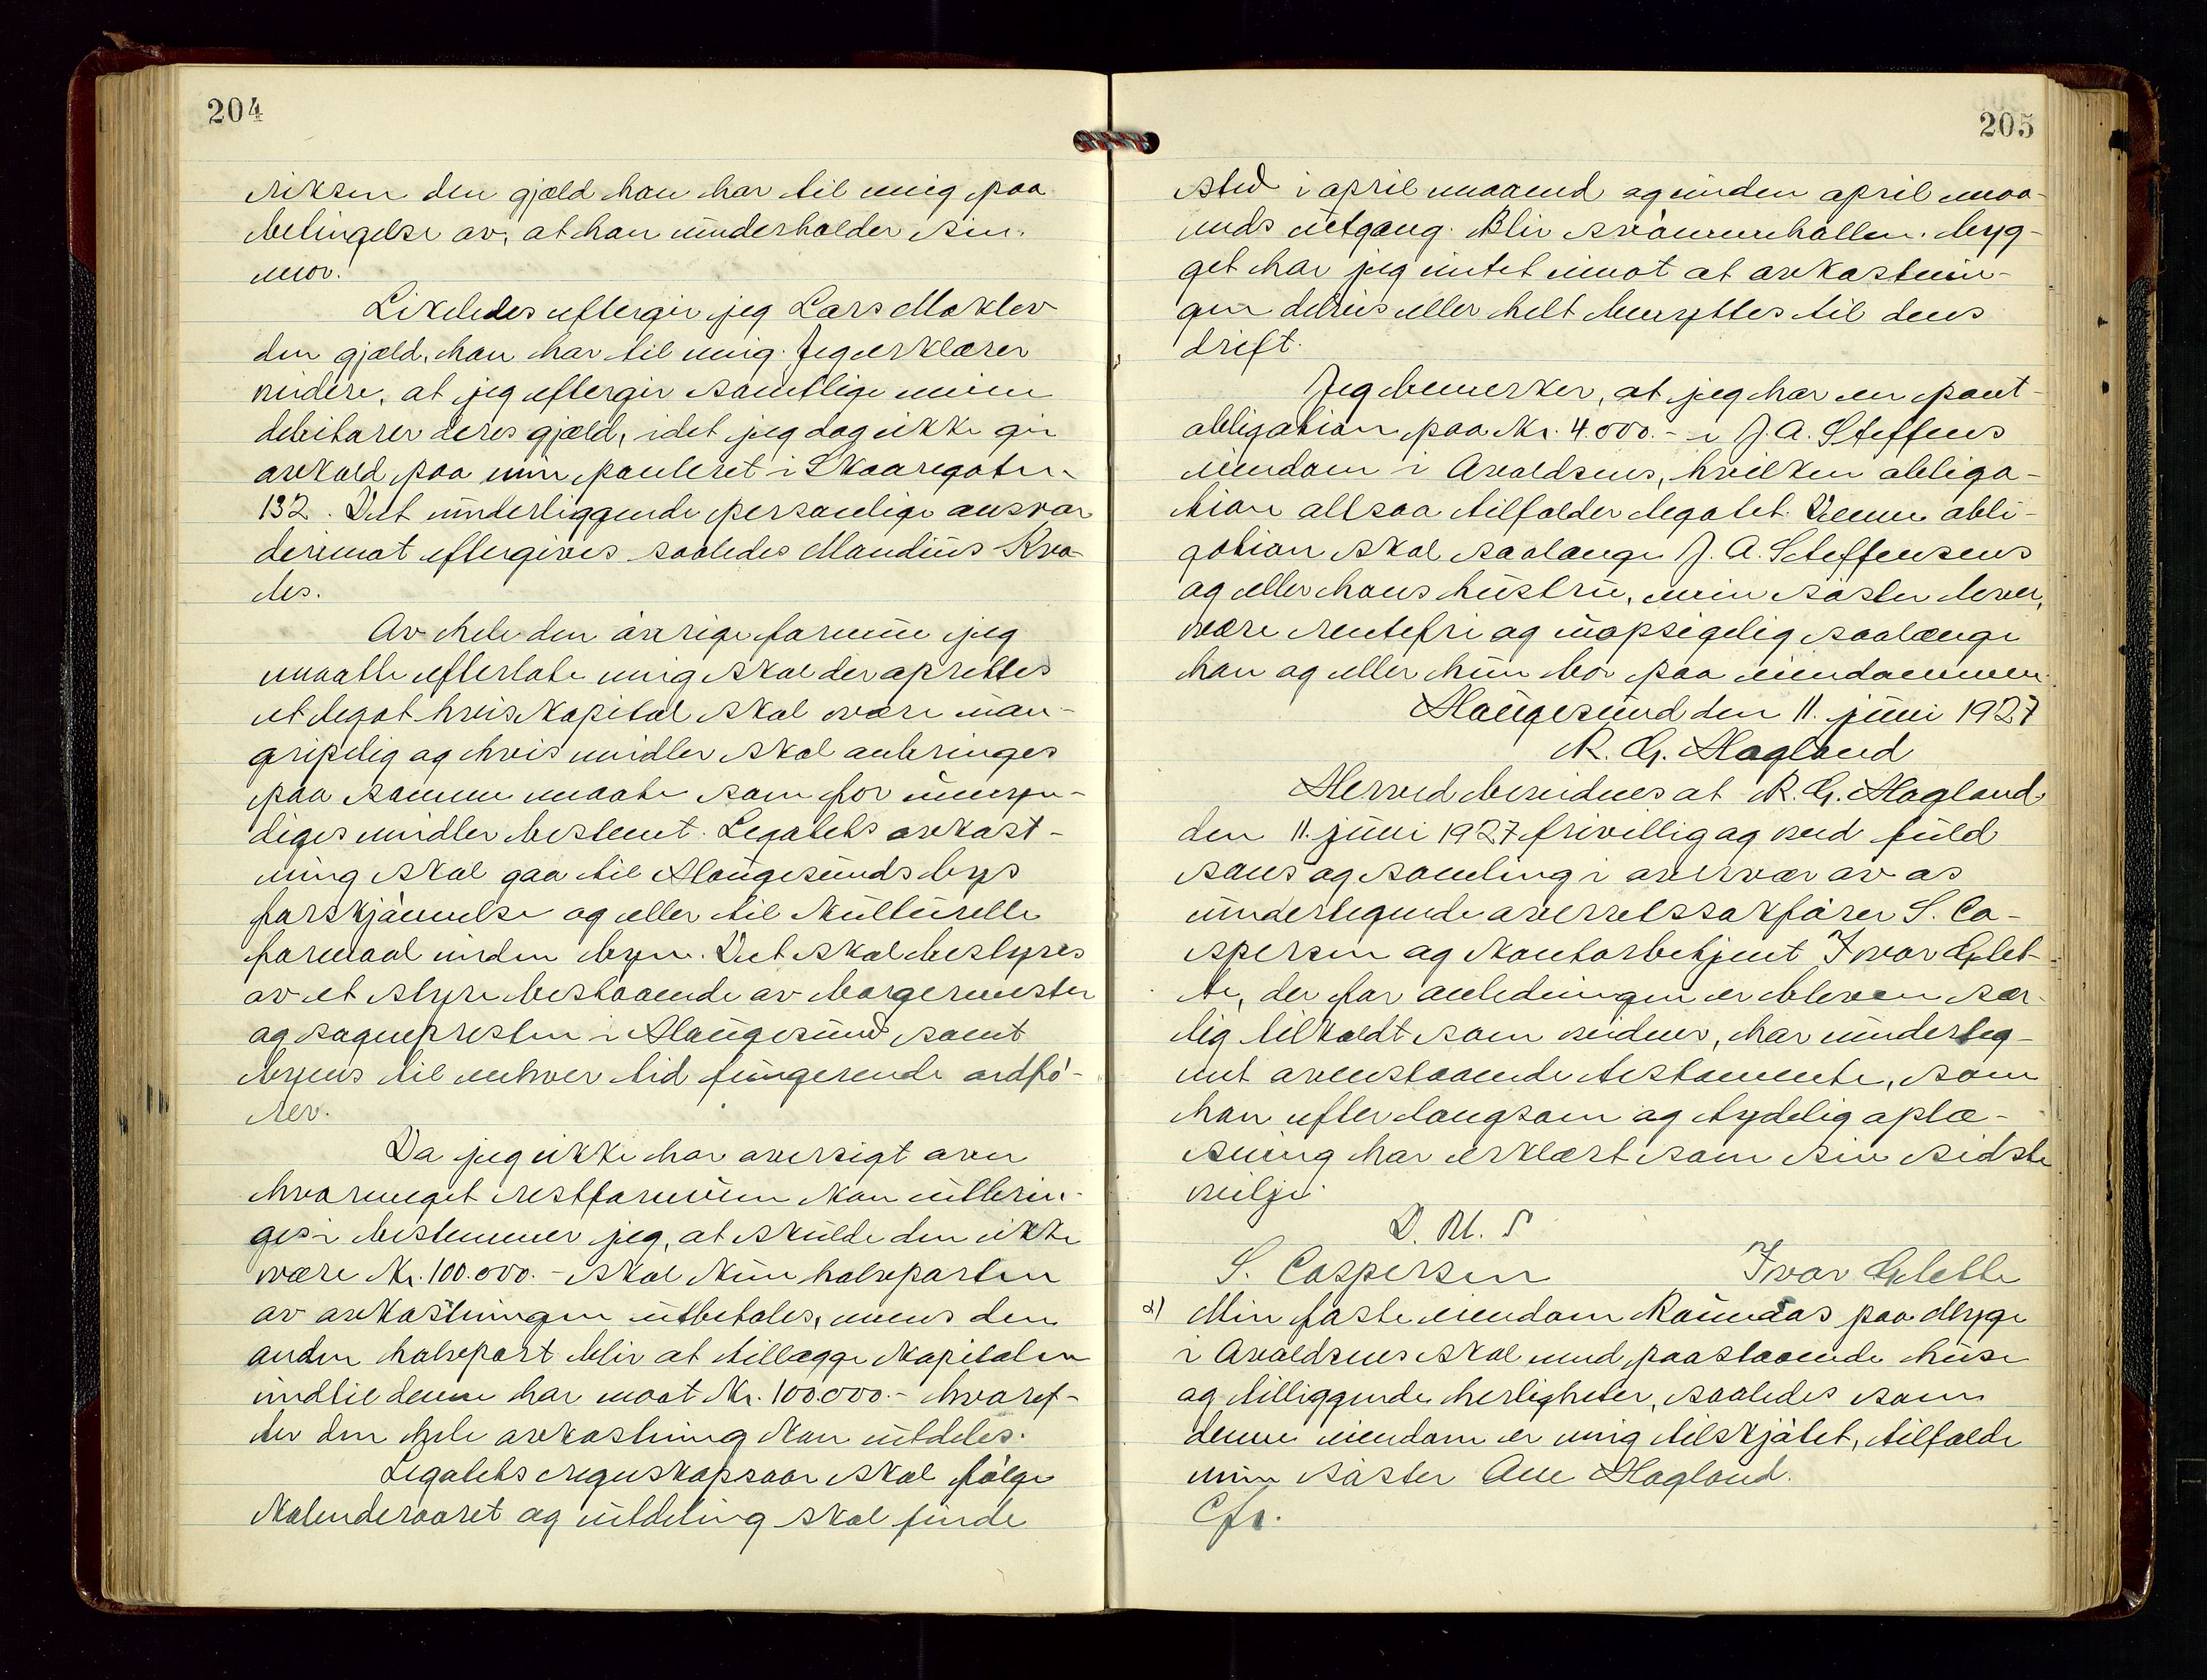 204
riksen den gjæld han har til mig paa
betingelse av, at han underholder sin
mor.
Likeledes eftergir jeg Lars Moklev
den gjæld, han har til mig. Jeg erklærer
videre, at jeg eftergir samtlige mine
debitorer deres gjæld, idet jeg dog ikke gir
avkald paa min panteret i Skaaregaten
132. Det underliggende personlige ansvar
derimot eftergives saaledes Mandius Kva-
les.
Av hele den øvrige formue jeg
maatte efterlate mig skal der oprettes
et legat hvis kapital skal være uan-
gripelig og hvis midler skal anbringes
paa samme maate som for umyn-
diges midler bestemt. Legatets avkast-
ning skal gaa til Haugesunds bys
forskjønnelse og eller til kulturelle
formaal inden byen. Det skal bestyres
av et styre bestaaende av borgermester
og sognepresten i Haugesund samt
byens til enhver tid fungerende ordfø-
rer.
Da jeg ikke har oversigt over
hvormeget restformuen kan indbrin-
ges i bestemmer jeg, at skulde den ikke
være kr. 100.000.- skal kun halvparten
av avkastningen utbetales, mens den
anden halvpart blir at tillægge kapitalen
indtil denne har naat kr. 100.000.- hvoref-
ter den hele avkastning kan utdeles.
Legatets regnskapsaar skal følge
kalenderaaret og utdeling skal finde
205
sted i april maaned og inden april maa-
neds utgang. Blir svømmehallen byg-
get har jeg intet imot at avkastnin-
gen delvis eller helt benyttes til dens
drift.
Jeg bemerker, at jeg har en pant-
obligation paa kr. 4.000.- i J. A. Steffens
eiendom i Avaldsnes, hvilken obliga-
tion altsaa tilfalder legatet. Denne obli-
gation skal saalænge J. A. Steffensens
og eller hans hustru, min søster lever,
være rentefri og uopsigelig saalænge
han og eller hun bor paa eiendommen.
Haugesund den 11. juni 1927
R. G. Hagland
Herved bevidnes at R. G. Hagland
den 11. juni 1927 frivillig og ved fuld
sans og samling i overvær av os
undertegnede overretssakfører S. Ca-
spersen og kontorbetjent Ivar Glet-
te, der for anledningen er bleven sær-
lig tilkaldt som vidner, har underteg-
net ovenstaaende testamente, som
han efter langsom og tydelig oplæ-
sning har erklært som sin sidste
vilje.
D. U. S
S. Caspersen Ivar Glette
x) Min faste eiendom Raunaas paa Myge
i Avaldsnes skal med paastaaende huse
og tilliggende herligheter, saaledes som
denne eiendom er mig tilskjøtet, tilfalde
min søster Ane Hagland.
Cfr.